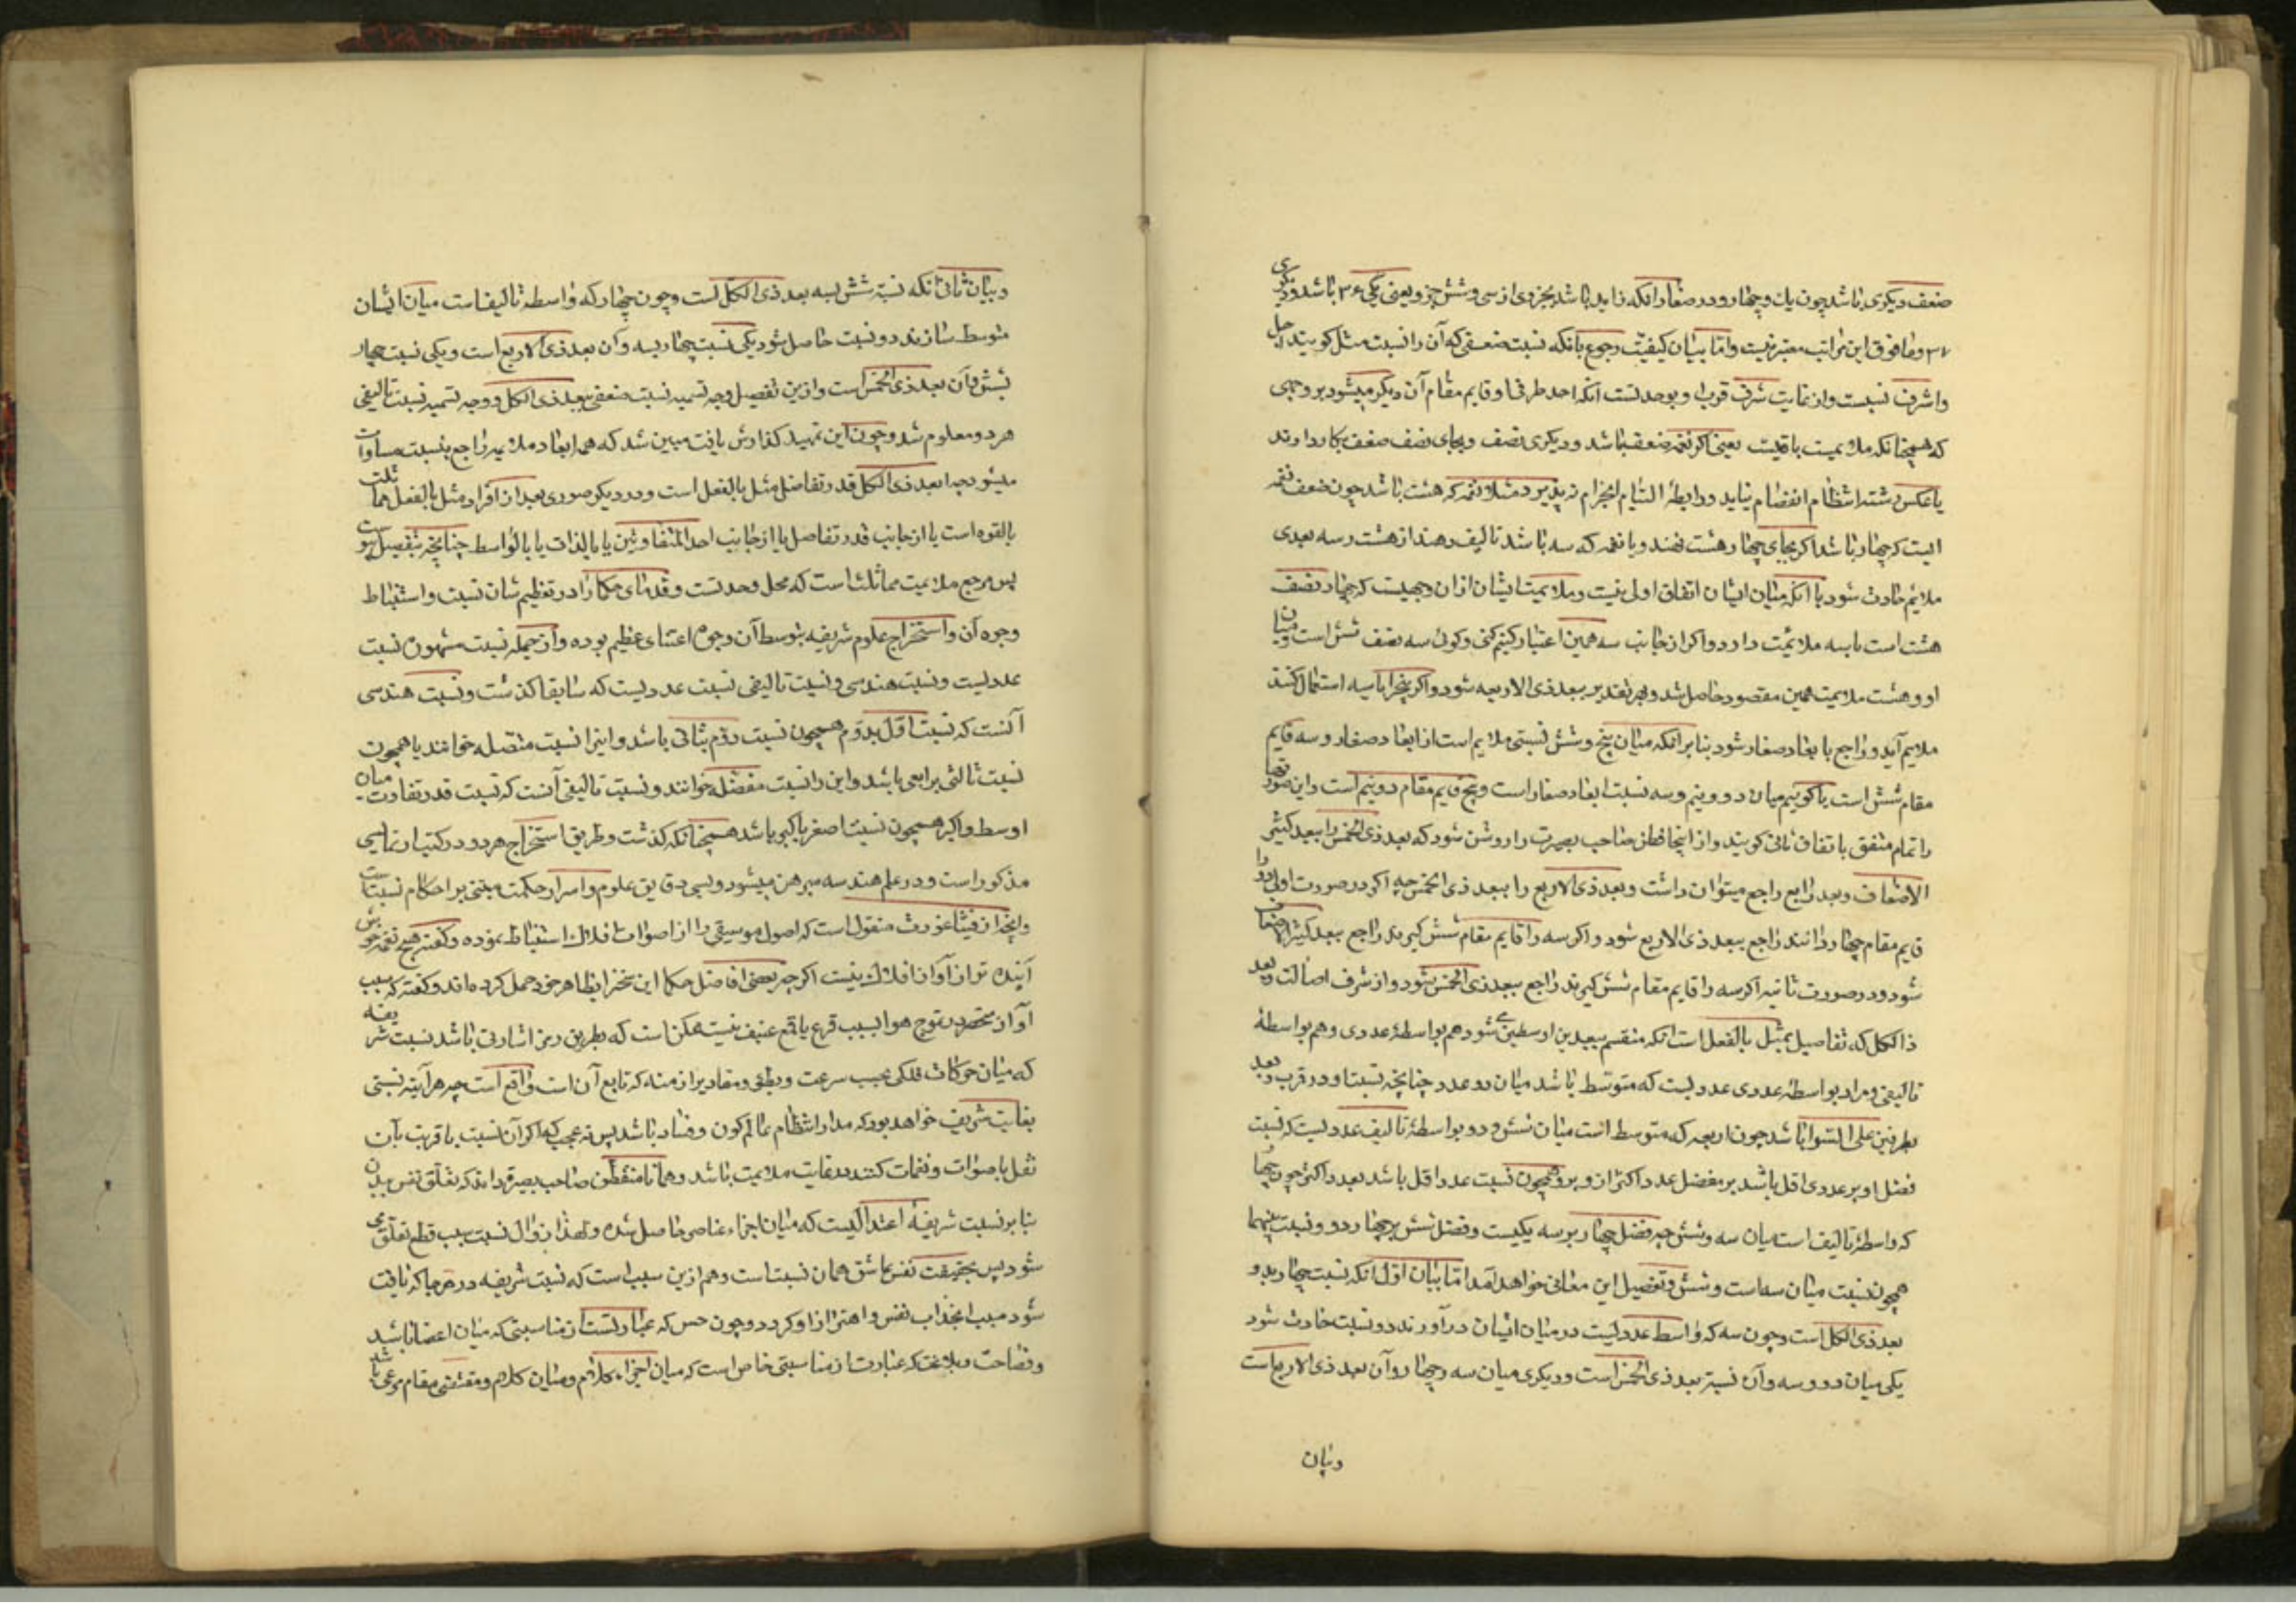 ضعف دیکری باشد چون یک و چهار و در صغار انکه زاید باشد بجزوی از سی و شش جزو یعنی یکی ۳۶ باشد و دیکری
۳۷ و ما فوق این مراتب معتبر نیست و اما بیان کیفیت رجوع بانکه نسبت ضعفی که آن را نسبت مثل کویند اجل
واشرف نسبست واز غایت شرف قرب او بوحدتست انکه احد طرفا و قایم مقام آن دیکر میشود بر وجهی
که همچنانکه ملایمیت باقیست یعنی اکر نغمه ضعف باشد و دیکری نصف و بجای نصف ضعف بکار دارند
یا عکس رشته انتظام انفصام نیابد و رابطهٔ التیام انخرام نپذیرد مثلا نغمه که هشت باشد چون ضعف نغمه
ایست که چهار باشد اکر بجای چهار هشت نهند و با نغمه که سه باشد تالیف دهند از هشت و سه بعدی
ملایم حادث شود با انکه میان ایشان اتفاق اولی نیست و ملایمیت ایشان از ان وجهیست که چهار نصف
هشت است با سه ملائمت دارد و اکر از جانب سه همین اعتبار کنیم کنی و کون سه نصف شش است و میان
او و هشت ملایمت همین مقصود حاصل شد و بهر تقدیر ببعد ذی الاربعه شود و اکر پنج را با سه استعمال کنند
ملایم آید و راجع با بعاد صغار شود بنابر انکه میان پنج و شش نسبتی ملایم است از ابعاد صغار و سه قایم
مقام شش است یا کوییم میان دو و نیم و سه نسبت ابعاد صغار است و پنج قایم مقام دو نیم است و این صورتها
را تمام متفق باتفاق ثانی کویند و از اینجا فطن صاحب بصیرت را روشن شود که بعد ذی الخمس را ببعد کثیر
الاضعاف و بعد رابع راجع میتوان داشت و بعد ذی الاربع را ببعد ذی الخمس چه اکر در صورت اولی دو را
قایم مقام چهار دانند راجع ببعد ذی الاربع شود و اکر سه را قایم مقام شش کیرند راجع ببعد کثیر الاضعاف
شود و در صورت ثانیه اکر سه را قایم مقام شش کیرند راجع ببعد ذی الخمس شود و از شرف اصالت بعد
ذا الکل که تفاصیل بمثل بالفعل است انکه منقسم ببعدین اوسطین شود هم بواسطهٔ عددی و هم بواسطهٔ
تالیفی و مراد بواسطهٔ عددی عددیست که متوسط باشد میان دو عدد چنانچه نسبت او در قرب و بعد
بطرفین علی السوا باشد چون اربعه که متوسط است میان شش و دو بواسطهٔ تالیف عددیست که نسبت
فضل او بر عددی اقل باشد بر مفضل عدد اکثر از و برو همچون نسبت عدد اقل باشد بعدد اکثر چون چهار
که واسطهٔ تالیف است میان سه و شش چه فضل چهار بر سه یکیست و فضل شش بر چهار دو و نسبت بینهما
همچون نسبت میان سه است و شش و تفصیل این معانی خواهد آمد اما بیان اول انکه نسبت چهار بدو
بعد ذی الکل است و چون سه که واسط عددیست در میان ایشان در آورند دو نسبت حادث شود
یکی میان دو و سه و آن نسبت بعد ذی الخمس است و دیکری میان سه و چهار و آن بعد ذی الاربع است
وبیان
وبیان ثانی انکه نسبت شش بسه بعد ذی الکل است و چون چهار که واسطه تالیف است میان ایشان
متوسط سازند دو نسبت حاصل شود یکی نسبت چهار بسه و آن بعد ذی الاربع است و یکی نسبت چهار
بشش و آن بعد ذی الخمس است و ازین تفصیل وجه تسمیه نسبت ضعفی ببعد ذی الکل و وجه تسمیه نسبت تالیفی
هر دو معلوم شد و چون این تمهید کذارش یافت مبین شد که همه ابعاد ملایمه راجع بنسبت مساوات
میشود چه ابعد ذی الکل قدر تفاضل مثل بالفعل است و در دیکر صوری بعد از افراد مثل بالفعل مماثلت
بالقوه است یا از جانب قدر تفاضل یا از جانب احد المتفاوتین یا بالذات یا بالواسطه چنانچه بتفصیل پیوست
پس مرجع ملایمیت مماثلت است که محل وحدتست و قدمای حکما را در تعظیم شان نسبت و استنباط
وجوه آن و استخراج علوم شریفه بتوسط آن وجوه اعتنای عظیم بوده و از جمله نسبت مشهوره نسبت
عددیست و نسبت هندسی و نسبت تالیفی نسبت عددیست که سابقا کذشت و نسبت هندسی
آنست که نسبت اول بدوم همچون نسبت دوم بثالثی باشد و اینرا نسبت متصله خوانند یا همچون
نسبت ثالثی برابعی باشد و این را نسبت منفصله خوانند و نسبت تالیفی آنست که نسبت قدر تفاوت میان
اوسط و اکبر همچون نسبت اصغر باکبر باشد همچنانکه کذشت و طریق استخراج هر دو در کتب ارثماطیقی
مذکور است و در علم هندسه مبرهن میشود و بسی دقایق علوم و اسرار حکمت مبتنی بر احکام نسبتاست
وانچه از فیثاغورث منقول است که اصول موسیقی را از اصوات افلاک استنباط نموده و کفته هیچ نغمه خوش
آینده تر از آواز افلاک نیست اکرچه بعضی افاضل حکما این سخن را بظاهر خود حمل کرده اند و کفته که سبب
آواز منحصر در تموج هوا بسبب قرع یا قلع عنیف نیست ممکن است که بطریق رمز اشارتی باشد نسبت شریفه
که میان حرکات فلکی بحسب سرعت و بطئ و مقادیر ازمنه که تابع آن است واقع است چه هر آینه نسبتی
بغایت شریف خواهد بود که مدار انتظام عالم کون و فساد باشد پس نه عجب که اکر آن نسبت یا قریب بآن
نقل باصوات و نغمات کنند در غایت ملایمت باشد و همانا متفطن صاحب بصیرة داند که تعلق نفس ببدن
بنا بر نسبت شریفهٔ اعتدالیست که میان اجزاء عناصر حاصل شده و لهذا زوال نسبت سبب قطع تعلق می
شود پس بحقیقت نفس عاشق همان نسبت است و هم ازین سبب است که نسبت شریفه در هرجا که یافت
شود سبب انجذاب نفس و اهتزاز او کردد و چون حسن که عبارتست از مناسبتی که میان اعضا باشد
و فصاحت و بلاغت که عبارت از مناسبتی خاص است که میان اجزاء کلام و میان کلام و مقتضی مقام مرعی باشد